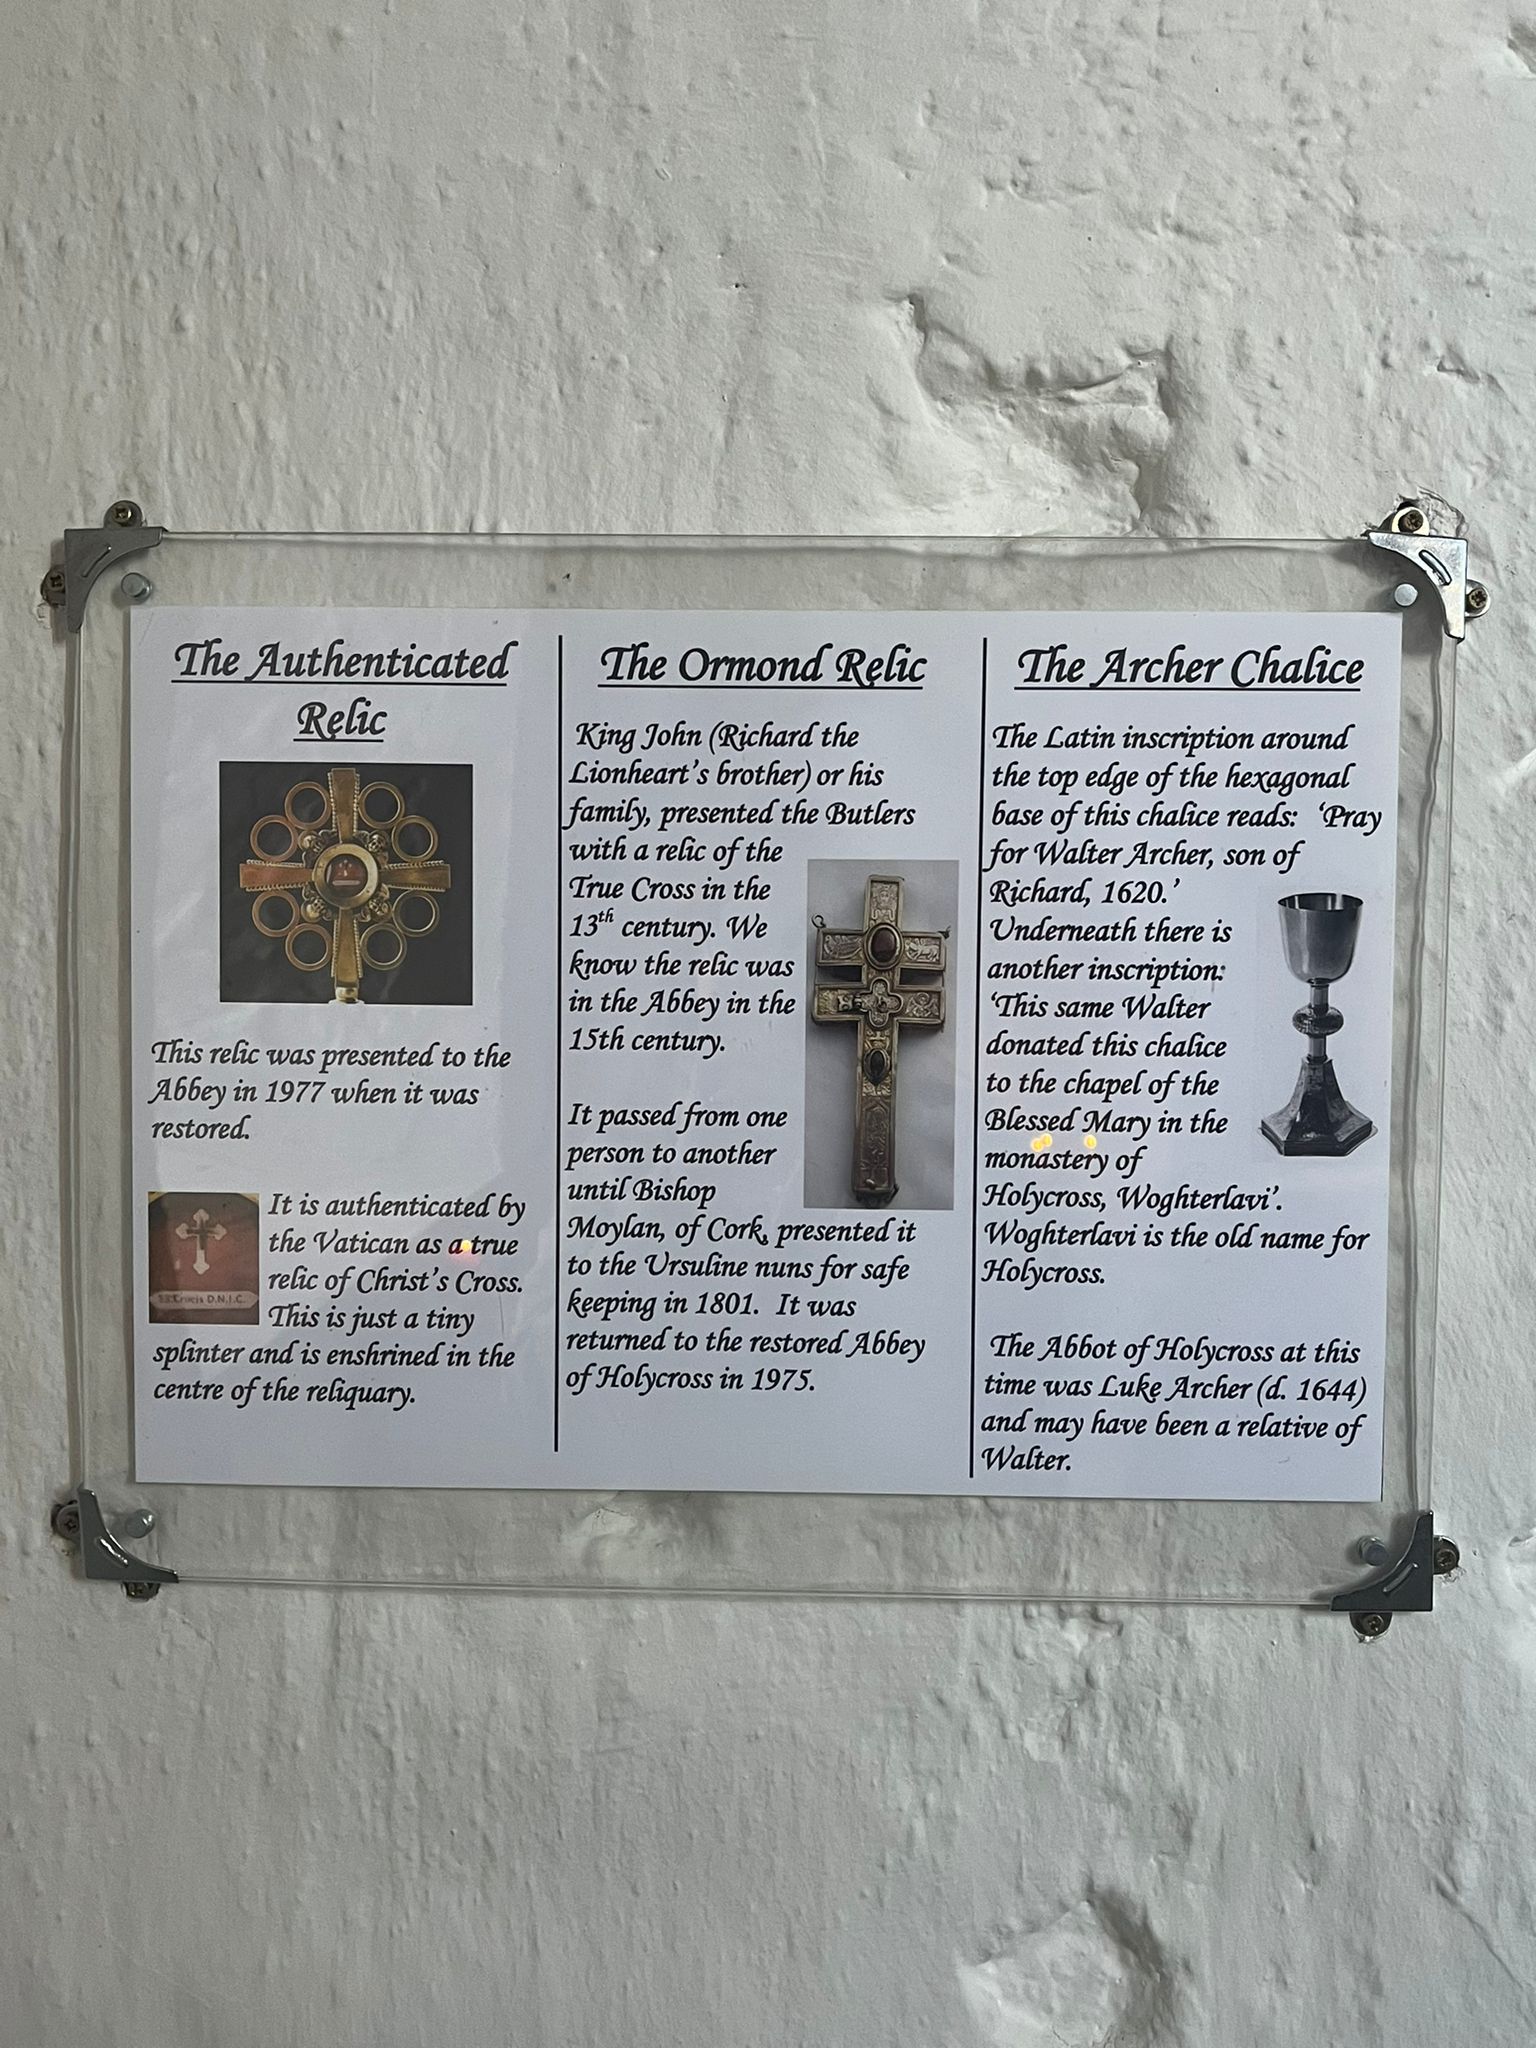 The Authenticated
Relic
This relic was presented to the
Abbey in 1977 when it was
restored.
It is authenticated by
the Vatican as a true
relic of Christ's Cross.
This is just a tiny
splinter and is enshrined in the
centre of the reliquary.
Crucis D.N.I.C.
The Ormond Relic
King John (Richard the
Lionheart's brother) or his
family, presented the Butlers
with a relic of the
True Cross in the
13th century. We
know the relic was
in the Abbey in the
15th century.
It passed from one
person to another
until Bishop
Moylan, of Cork, presented it
to the Ursuline nuns for safe
keeping in 1801. It was
returned to the restored Abbey
of Holycross in 1975.
The Archer Chalice
The Latin inscription around
the top edge of the hexagonal
base of this chalice reads: 'Pray
for Walter Archer, son of
Richard, 1620.'
Underneath there is
another inscription:
'This same Walter
donated this chalice
to the chapel of the
Blessed Mary in the
monastery of
Holycross, Woghterlavi'.
Woghterlavi is the old name for
Holycross.
The Abbot of Holycross at this
time was Luke Archer (d. 1644)
and may have been a relative of
Walter.